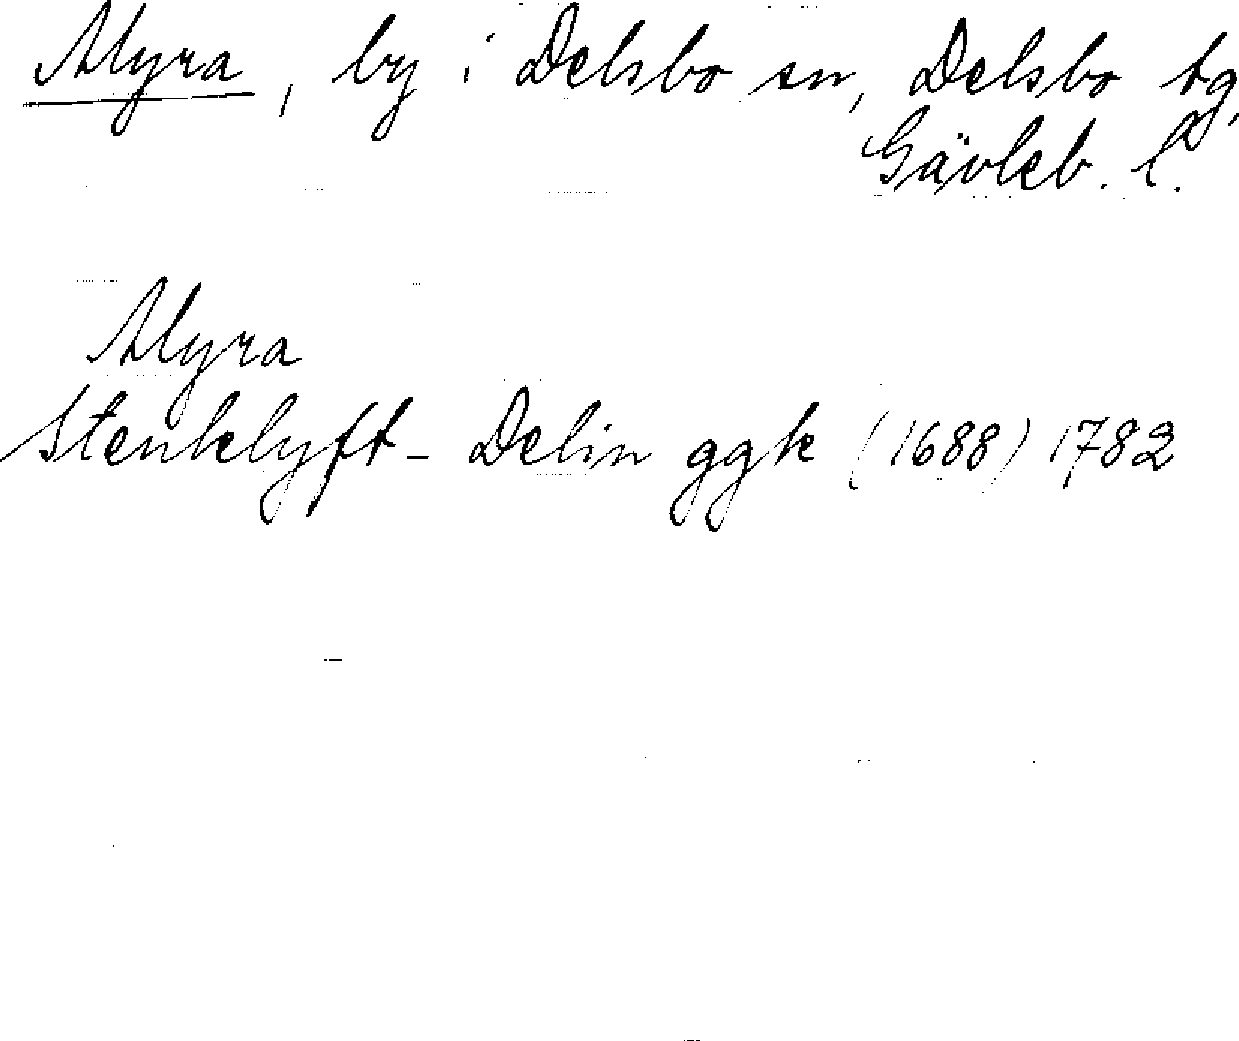 Myra, by i Delsbo sn, Delsbo tg,
Gävleb. l.
Myra
Stenklyft - Delin ggk (1688) 1782